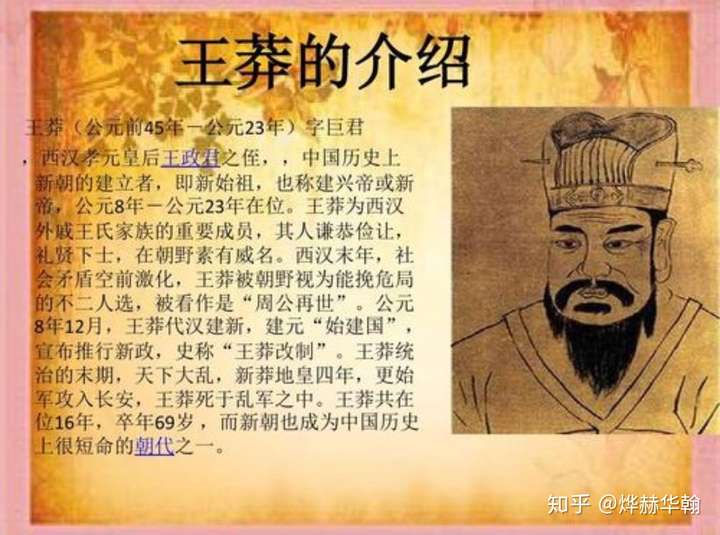 王莽的介绍
王莽（公元前45年－公元23年）字巨君
，西汉孝元皇后王政君之侄，，中国历史上
新朝的建立者，即新始祖，也称建兴帝或新
帝，公元8年－公元23年在位。王莽为西汉
外戚王氏家族的重要成员，其人谦恭俭让，
礼贤下士，在朝野素有威名。西汉末年，社
会矛盾空前激化，王莽被朝野视为能挽危局
的不二人选，被看作是“周公再世”。公元
8年12月，王莽代汉建新，建元“始建国”，
宣布推行新政，史称“王莽改制”。王莽统
治的末期，天下大乱，新莽地皇四年，更始
军攻入长安，王莽死于乱军之中。王莽共在
位16年，卒年69岁，而新朝也成为中国历史
上很短命的朝代之一。
知乎 @烨赫华翰